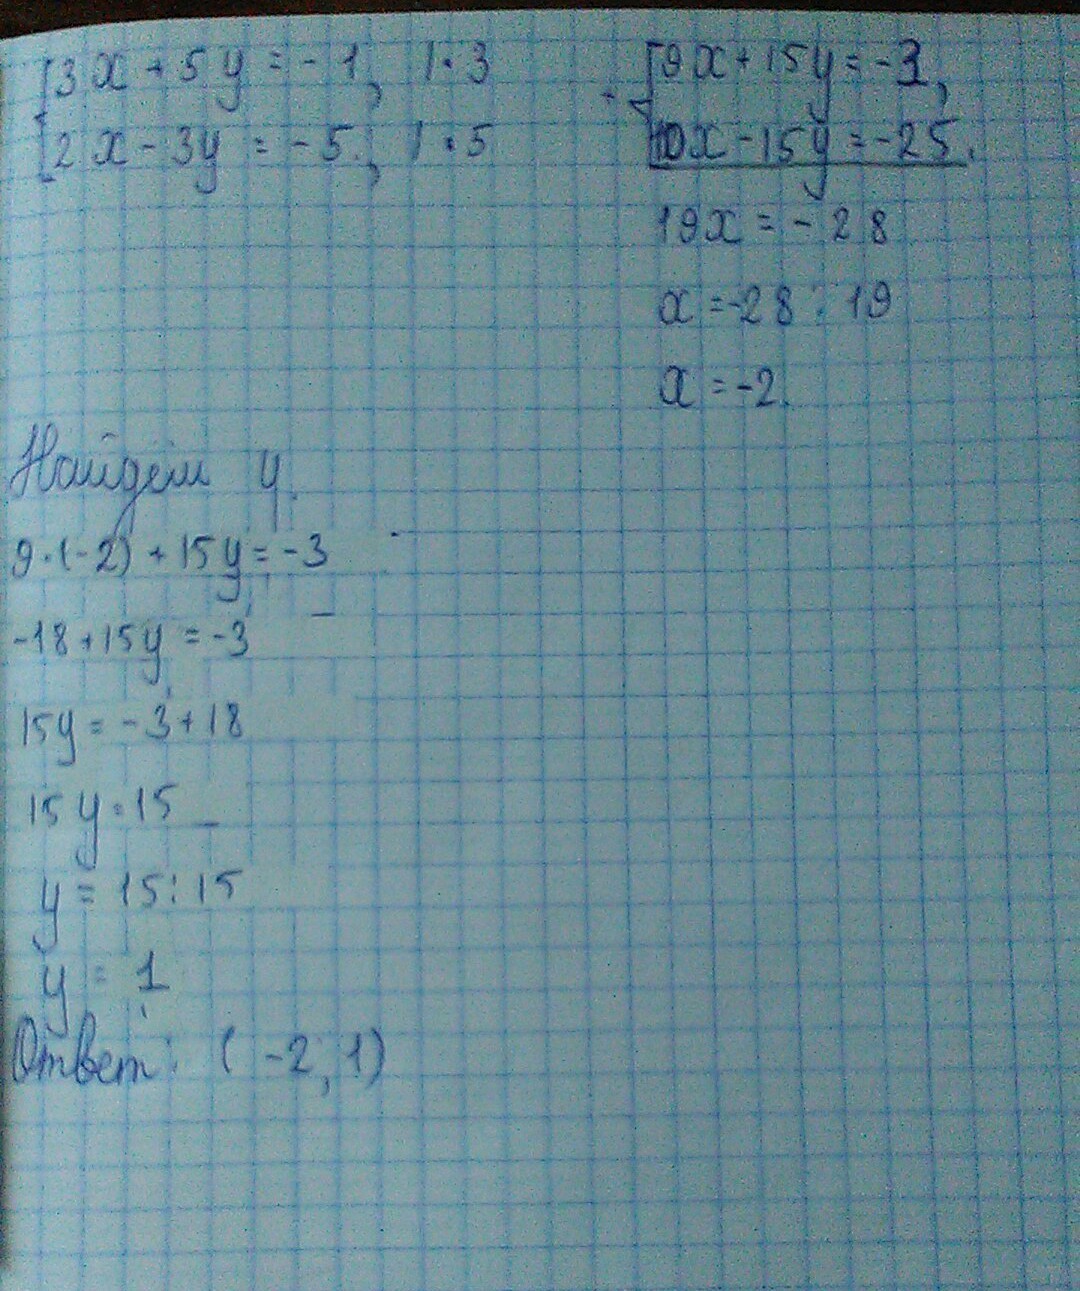 3x + 5y = -1, | · 3
2x - 3y = -5, | · 5
9x + 15y = -3,
10x - 15y = -25.
19x = -28
x = -28 : 19
x = -2.
Найдём y.
9·(-2) + 15y = -3
-18 + 15y = -3
15y = -3 + 18
15y = 15
y = 15 : 15
y = 1
Ответ: (-2, 1)